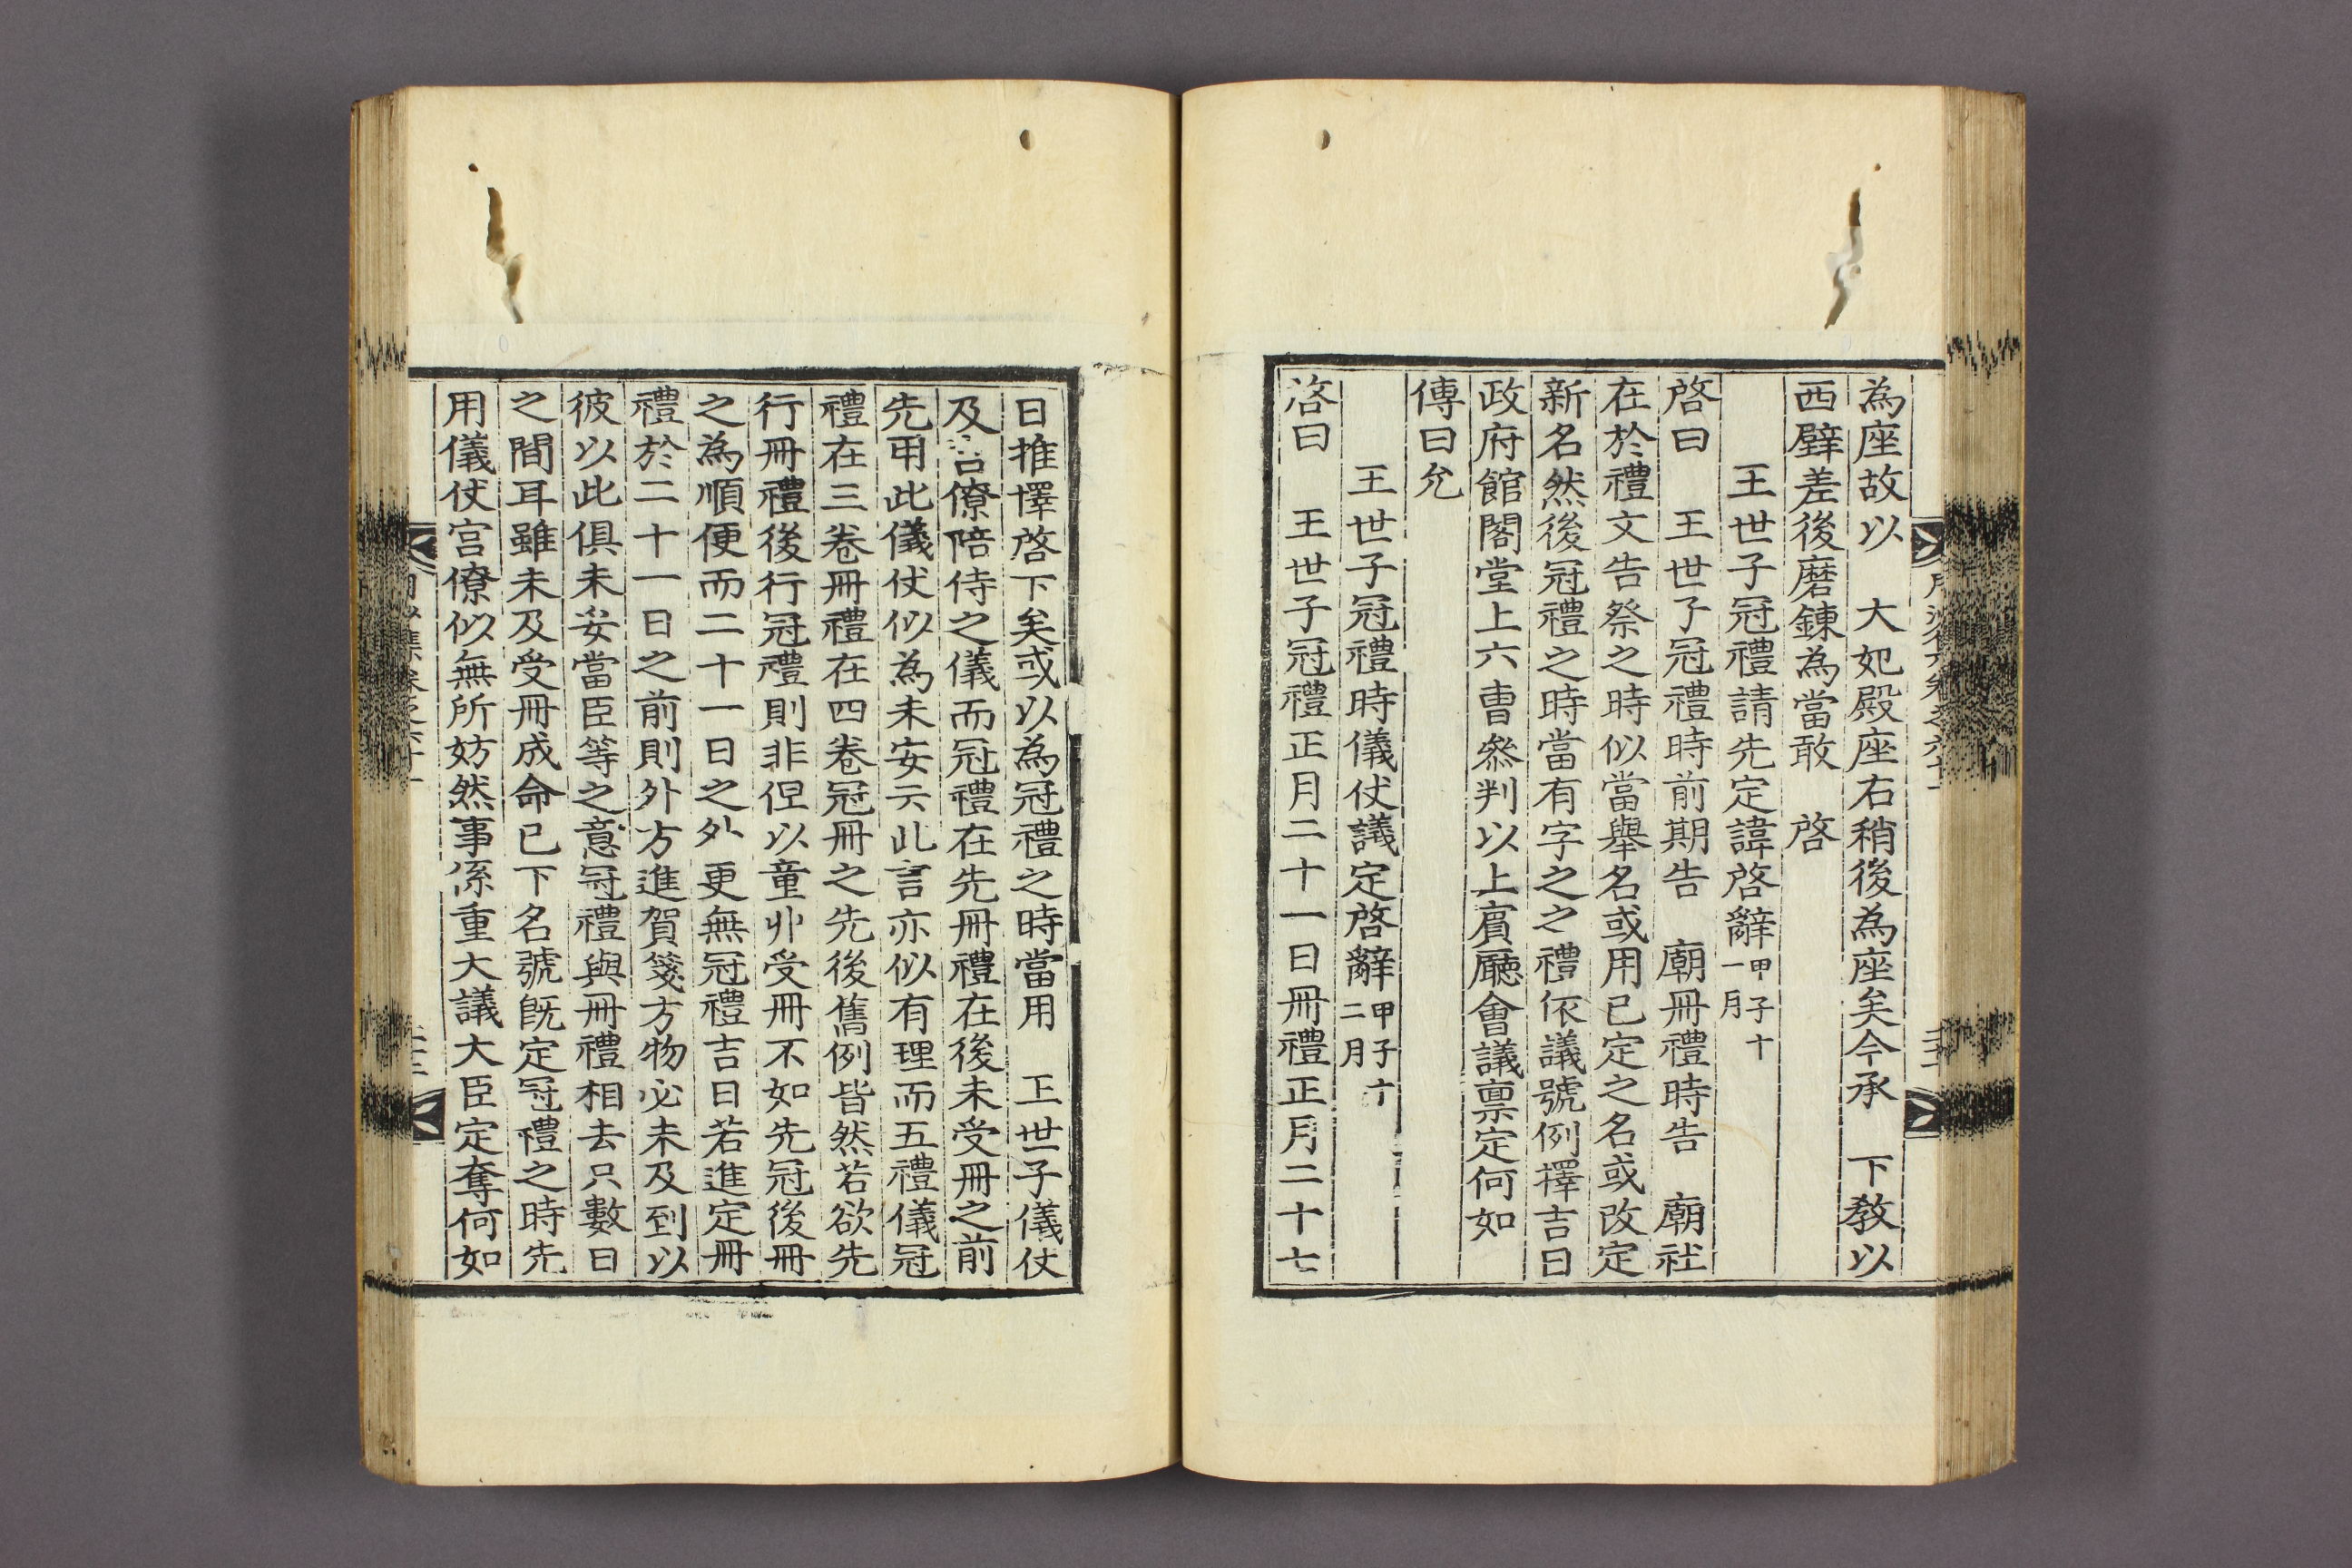 為座故以　大妃殿座右稍後為座矣今承　下敎以
西壁差後磨鍊為當敢　啓
王世子冠禮請先定諱啓辭甲子十一月
啓曰　王世子冠禮時前期告　廟冊禮時告　廟社
在於禮文告祭之時似當舉名或用已定之名或改定
新名然後冠禮之時當有字之之禮依議號例擇吉日
政府館閣堂上六曺叅判以上賓廳會議禀定何如
傳曰允
王世子冠禮時儀仗議定啓辭甲子十二月
啓曰　王世子冠禮正月二十一日冊禮正月二十七
日推擇啓下矣或以為冠禮之時當用　王世子儀仗
及宮僚陪侍之儀而冠禮在先冊禮在後未受冊之前
先用此儀仗似為未安云此言亦似有理而五禮儀冠
禮在三卷冊禮在四卷冠冊之先後舊例皆然若欲先
行冊禮後行冠禮則非但以童丱受冊不如先冠後冊
之為順便而二十一日之外更無冠禮吉日若進定冊
禮於二十一日之前則外方進賀箋方物必未及到以
彼以此俱未妥當臣等之意冠禮與冊禮相去只數日
之間耳雖未及受冊成命已下名號旣定冠禮之時先
用儀仗宮僚似無所妨然事係重大議大臣定奪何如